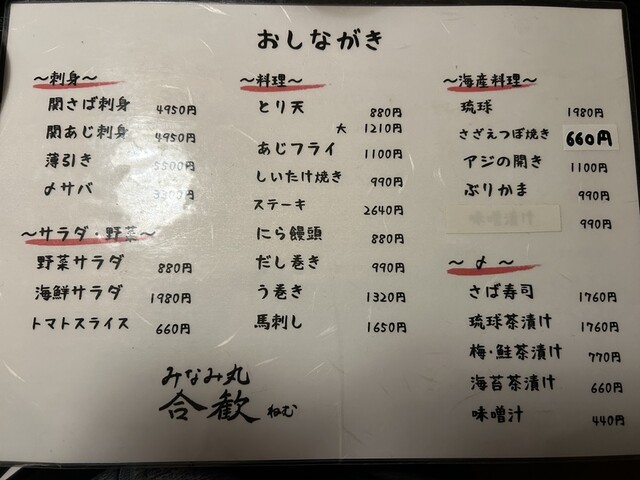 おしながき
〜刺身〜
関さば刺身 4950円
関あじ刺身 4950円
薄引き 5500円
〆サバ 3300円
〜サラダ・野菜〜
野菜サラダ 880円
海鮮サラダ 1980円
トマトスライス 660円
〜料理〜
とり天 880円
大 1210円
あじフライ 1100円
しいたけ焼き 990円
ステーキ 2640円
にら饅頭 880円
だし巻き 990円
う巻き 1320円
馬刺し 1650円
〜海産料理〜
琉球 1980円
さざえつぼ焼き 660円
アジの開き 1100円
ぶりかま 990円
990円
〜〆〜
さば寿司 1760円
琉球茶漬け 1760円
梅・鮭茶漬け 770円
海苔茶漬け 660円
味噌汁 440円
みなみ丸
合歓 ねむ